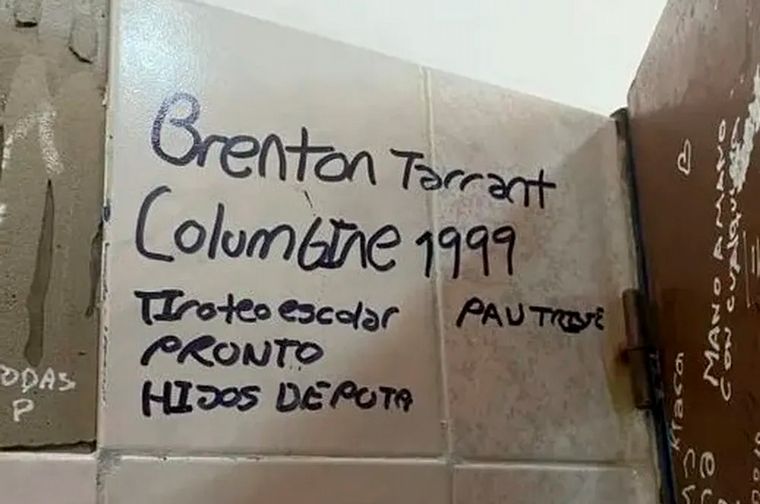 Brenton Tarrant
Columbine 1999
Tiroteo escolar
PRONTO
HIJOS DE PUTA
PAU TRISTE
ODAS
P
MANO A MANO
CON CUALQUIE